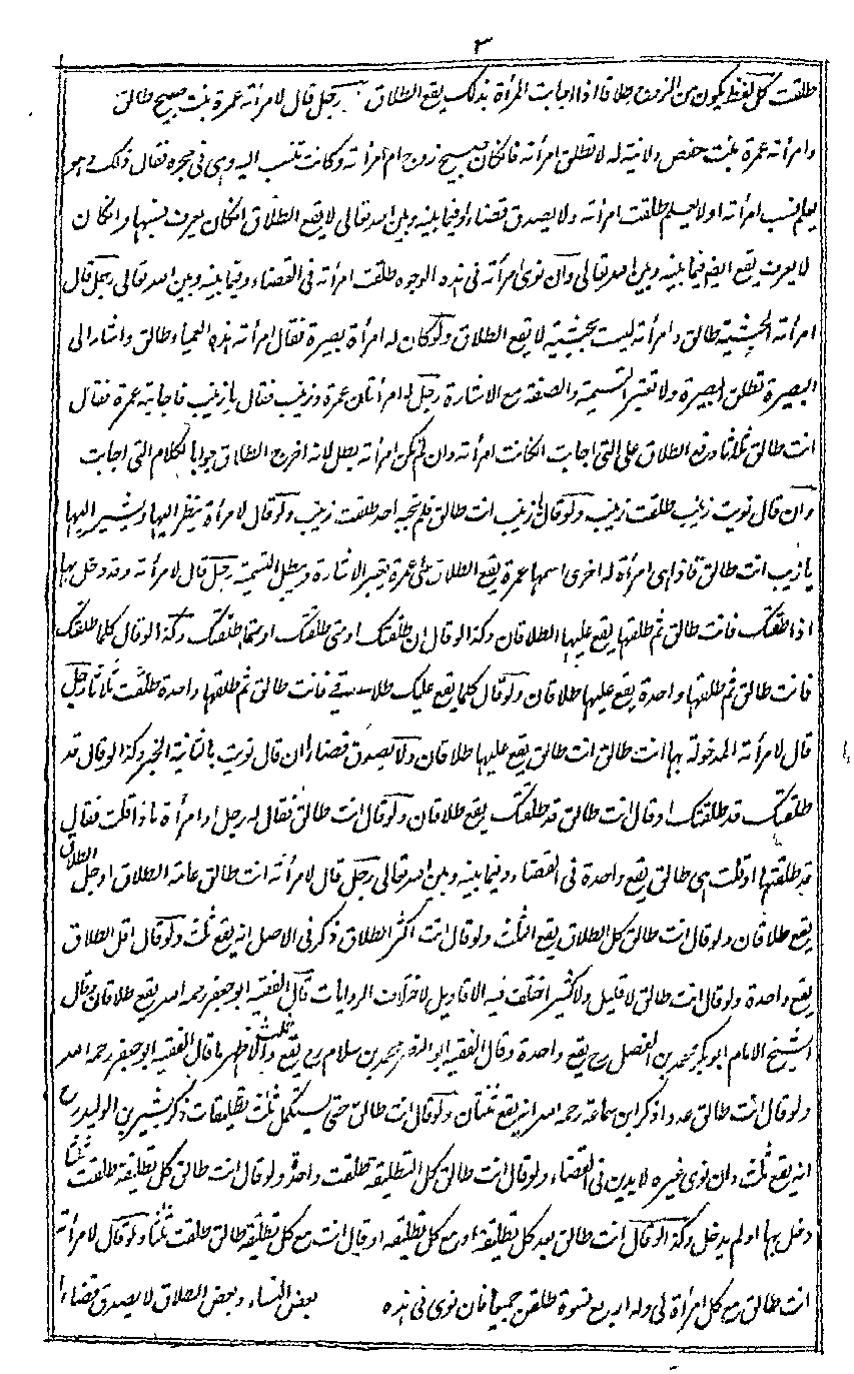 ٣
طلقت كل لفظ يكون من الزوج طلاقا اذا اجابت المرأة بذلك يقع الطلاق رجل قال لامرأته عمرة بنت صبيح طالق
وامرأته عمرة بنت حفص ولا نية له لا تطلق امرأته فان كان صبيح زوج ام امرأته وكانت تنسب اليه وهي في حجره فقال ذلك وهو
يعلم نسب امرأته او لا يعلم طلقت امرأته ولا يصدق قضاء وفيما بينه وبين الله تعالى لا يقع الطلاق ان كان يعرف نسبها وان كان
لا يعرف يقع ايضا فيما بينه وبين الله تعالى وان نوى امرأته في هذه الوجوه طلقت امرأته في القضاء وفيما بينه وبين الله تعالى رجل قال
امرأته الحبشية طالق وامرأته ليست بحبشية لا يقع الطلاق ولو كان له امرأة بصيرة فقال امرأته هذه العمياء طالق واشار الى
البصيرة تطلق البصيرة ولا تعتبر التسمية والصفة مع الاشارة رجل له امرأتان عمرة وزينب فقال يا زينب فاجابته عمرة فقال
انت طالق ثلاثا وقع الطلاق على التي اجابت ان كانت امرأته وان لم تكن امرأته بطل لانه اخرج الطلاق جوابا لكلام التي اجابت
وان قال نويت زينب طلقت زينب ولو قال يا زينب انت طالق فلم تجبه احد طلقت زينب ولو قال لامرأة ينظر اليها ويشير اليها
يا زينب انت طالق فاذا هي امرأة له اخرى اسمها عمرة يقع الطلاق على عمرة يعتبر الاشارة ويبطل التسمية رجل قال لامرأته وقد دخل بها
اذا طلقتك فانت طالق ثم طلقها يقع عليها الطلاقان وكذا لو قال ان طلقتك او متى طلقتك او متى ما طلقتك وكذا لو قال كلما طلقتك
فانت طالق ثم طلقها واحدة يقع عليها طلاقان ولو قال كلما يقع عليك طلاقي فانت طالق ثم طلقها واحدة طلقت ثلاثا رجل
قال لامرأته المدخولة بها انت طالق انت طالق يقع عليها طلاقان ولا يصدق قضاء ان قال نويت بالثانية الخبر وكذا لو قال قد
طلقتك قد طلقتك او قال انت طالق قد طلقتك يقع طلاقان ولو قال انت طالق فقال له رجل او امرأة ماذا قلت فقال
قد طلقتها او قلت هي طالق يقع واحدة في القضاء وفيما بينه وبين الله تعالى رجل قال لامرأته انت طالق عامة الطلاق او جل الطلاق
يقع طلاقان ولو قال انت طالق كل الطلاق يقع الثلث ولو قال انت اكثر الطلاق ذكر في الاصل انه يقع ثلث ولو قال اقل الطلاق
يقع واحدة ولو قال انت طالق لا قليل ولا كثير اختلف فيه الاقاويل لاختلاف الروايات قال الفقيه ابو جعفر رحمه الله يقع طلاقان وقال
الشيخ الامام ابو بكر محمد بن الفضل رح يقع واحدة وقال الفقيه ابو النصر محمد بن سلام رح يقع ثلث والاظهر ما قال الفقيه ابو جعفر رحمه الله
ولو قال انت طالق عددا ذكر ابن سماعة رحمه الله انه يقع ثنتان ولو قال انت طالق حتى يستكمل ثلث تطليقات ذكر بشير بن الوليد رح
انه يقع ثلث وان نوى غيره لا يدين في القضاء ولو قال انت طالق كل التطليقة طلقت واحدة ولو قال انت طالق كل تطليقة طلقت ثلثا
دخل بها او لم يدخل وكذا لو قال انت طالق بعد كل تطليقة او مع كل تطليقة او قال انت مع كل تطليقة طالق طلقت ثلثا ولو قال لامرأته
انت طالق مع كل امرأة لي وله اربع نسوة طلقن جميعا فان نوى في هذه بعض النساء وبعض الطلاق لا يصدق قضاء